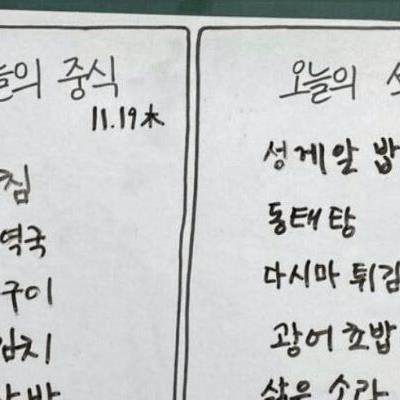 늘의 중식
11.19 木
침
역국
구이
김치
오늘의
성게알 밥
동태탕
다시마 튀김
광어초밥
삶은 소라